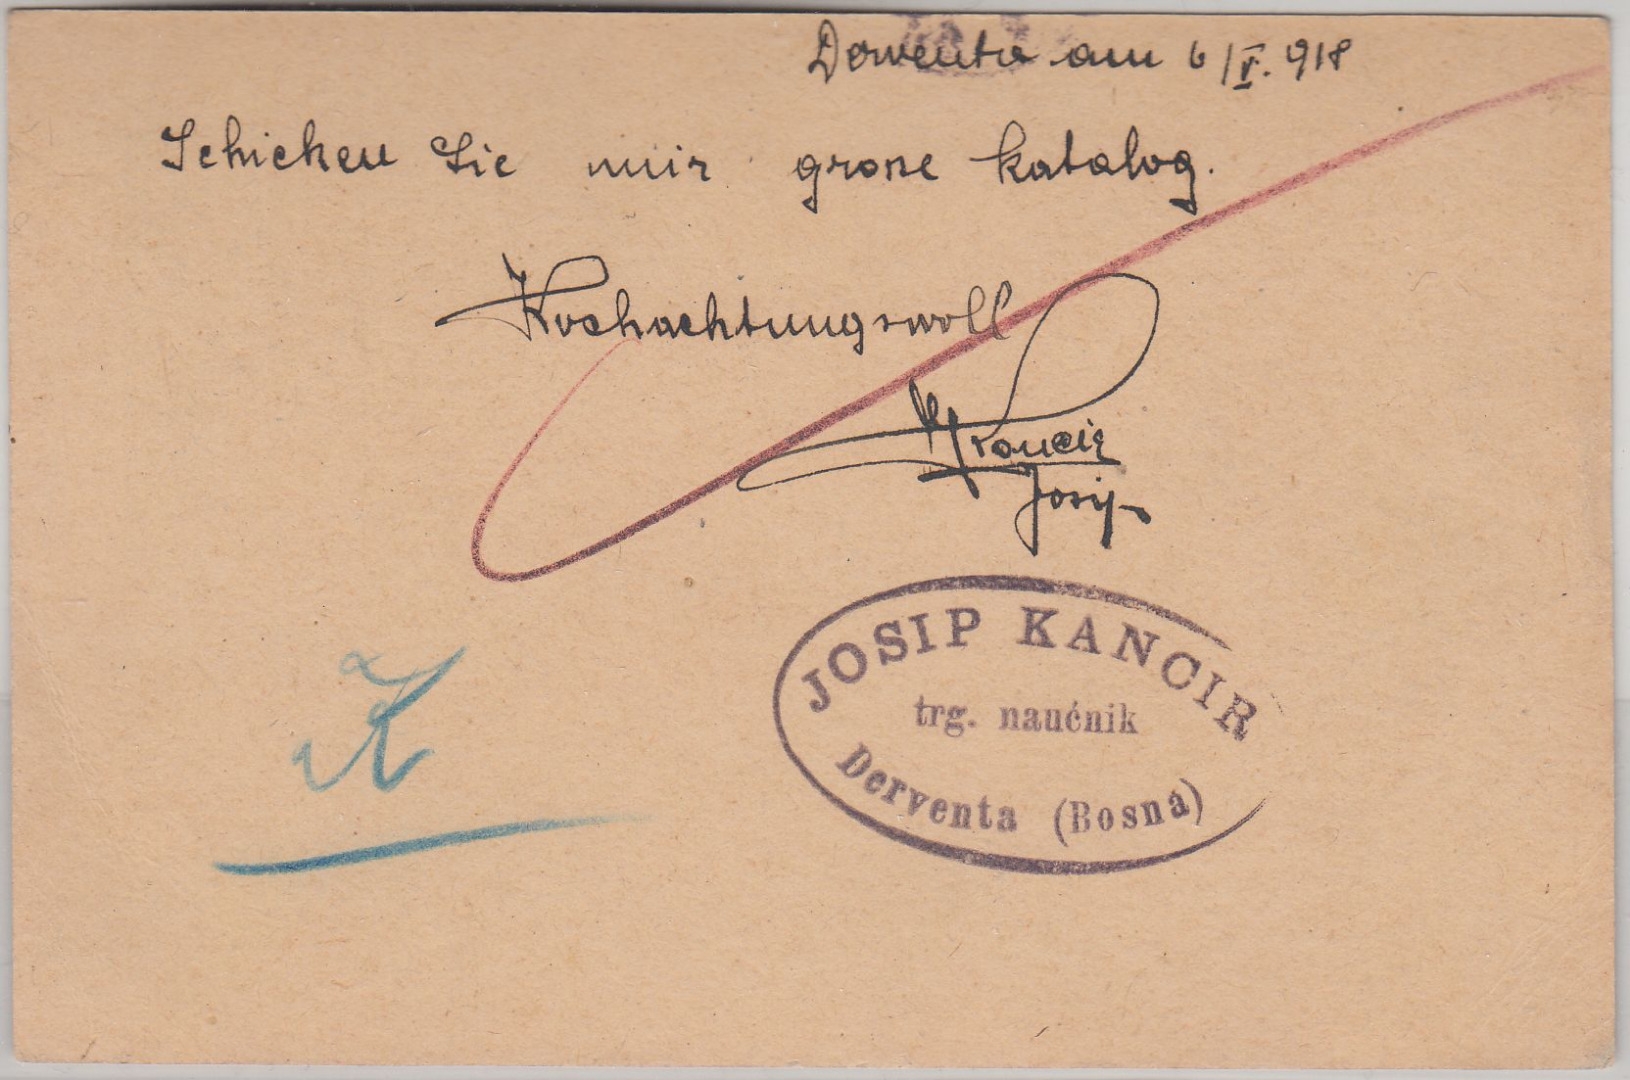 Derventa am 6/V. 918
Schicken Sie mir grose katalog.
Hochachtungswoll
Kancir
Josip
JOSIP KANCIR
trg. naućnik
Derventa (Bosna)
K